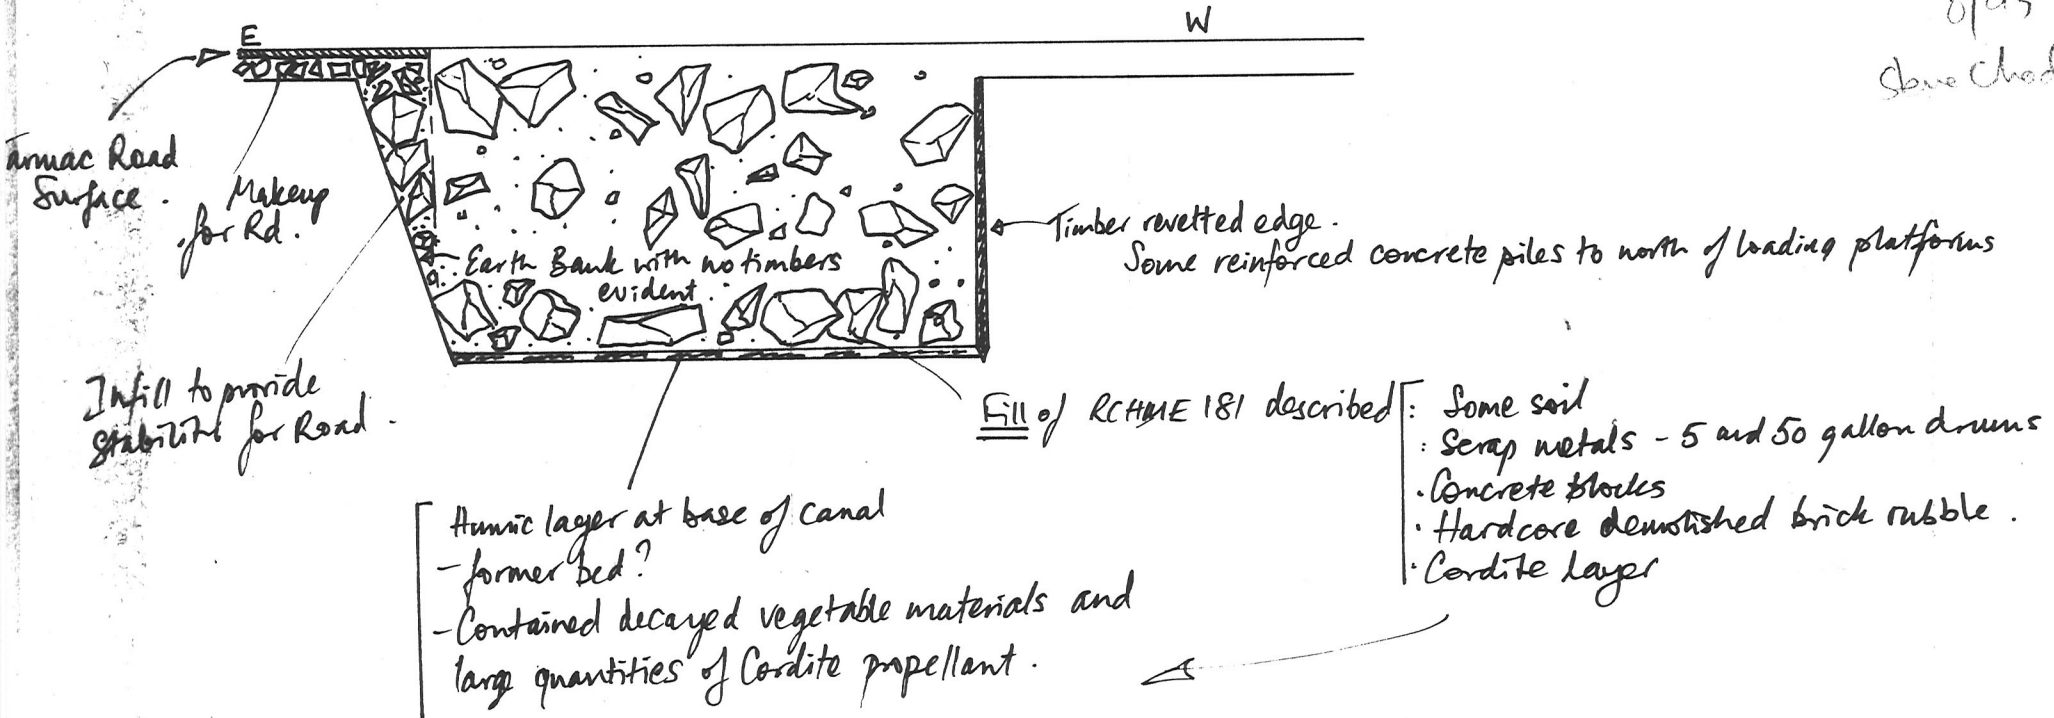 E
W
Tarmac Road
Surface.
Makeup
for Rd.
Timber revetted edge.
Some reinforced concrete piles to north of loading platforms
Earth Bank with no timbers
evident.
Infill to provide
stability for Road.
Fill of RCHME 181 described
: Some soil
: Scrap metals - 5 and 50 gallon drums
· Concrete blocks
· Hardcore demolished brick rubble.
· Cordite layer
Humic layer at base of canal
- former bed?
- Contained decayed vegetable materials and
large quantities of Cordite propellant.